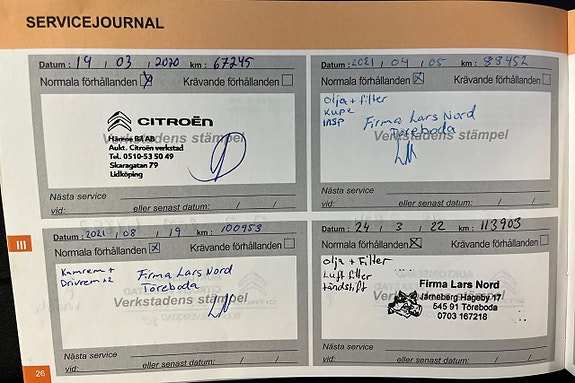 SERVICEJOURNAL
Datum : 19 / 03 / 2020 km : 67245
Normala förhållanden Krävande förhållanden
CITROËN
Verkstadens stämpel
Aukt. Citroën verkstad
Tel. 0510-53 50 49
Skaragatan 79
Lidköping
Nästa service
vid: eller senast datum: / /
Datum : 2021 / 04 / 05 km : 88452
Normala förhållanden Krävande förhållanden
olja + filter
kupe
insp
Firma Lars Nord
Töreboda
Verkstadens stämpel
Nästa service
vid: eller senast datum: / /
III
Datum : 2021 / 08 / 19 km : 100953
Normala förhållanden Krävande förhållanden
Kamrem +
Drivrem x2
Firma Lars Nord
Töreboda
Verkstadens stämpel
Nästa service
vid: eller senast datum: / /
Datum : 24 / 3 / 22 km : 113903
Normala förhållanden Krävande förhållanden
olja + Filter
Luft filter
tändstift
Firma Lars Nord
Järneberg Hageby 17
545 91 Töreboda
0703 167218
Nästa service
vid: eller senast datum: / /
26